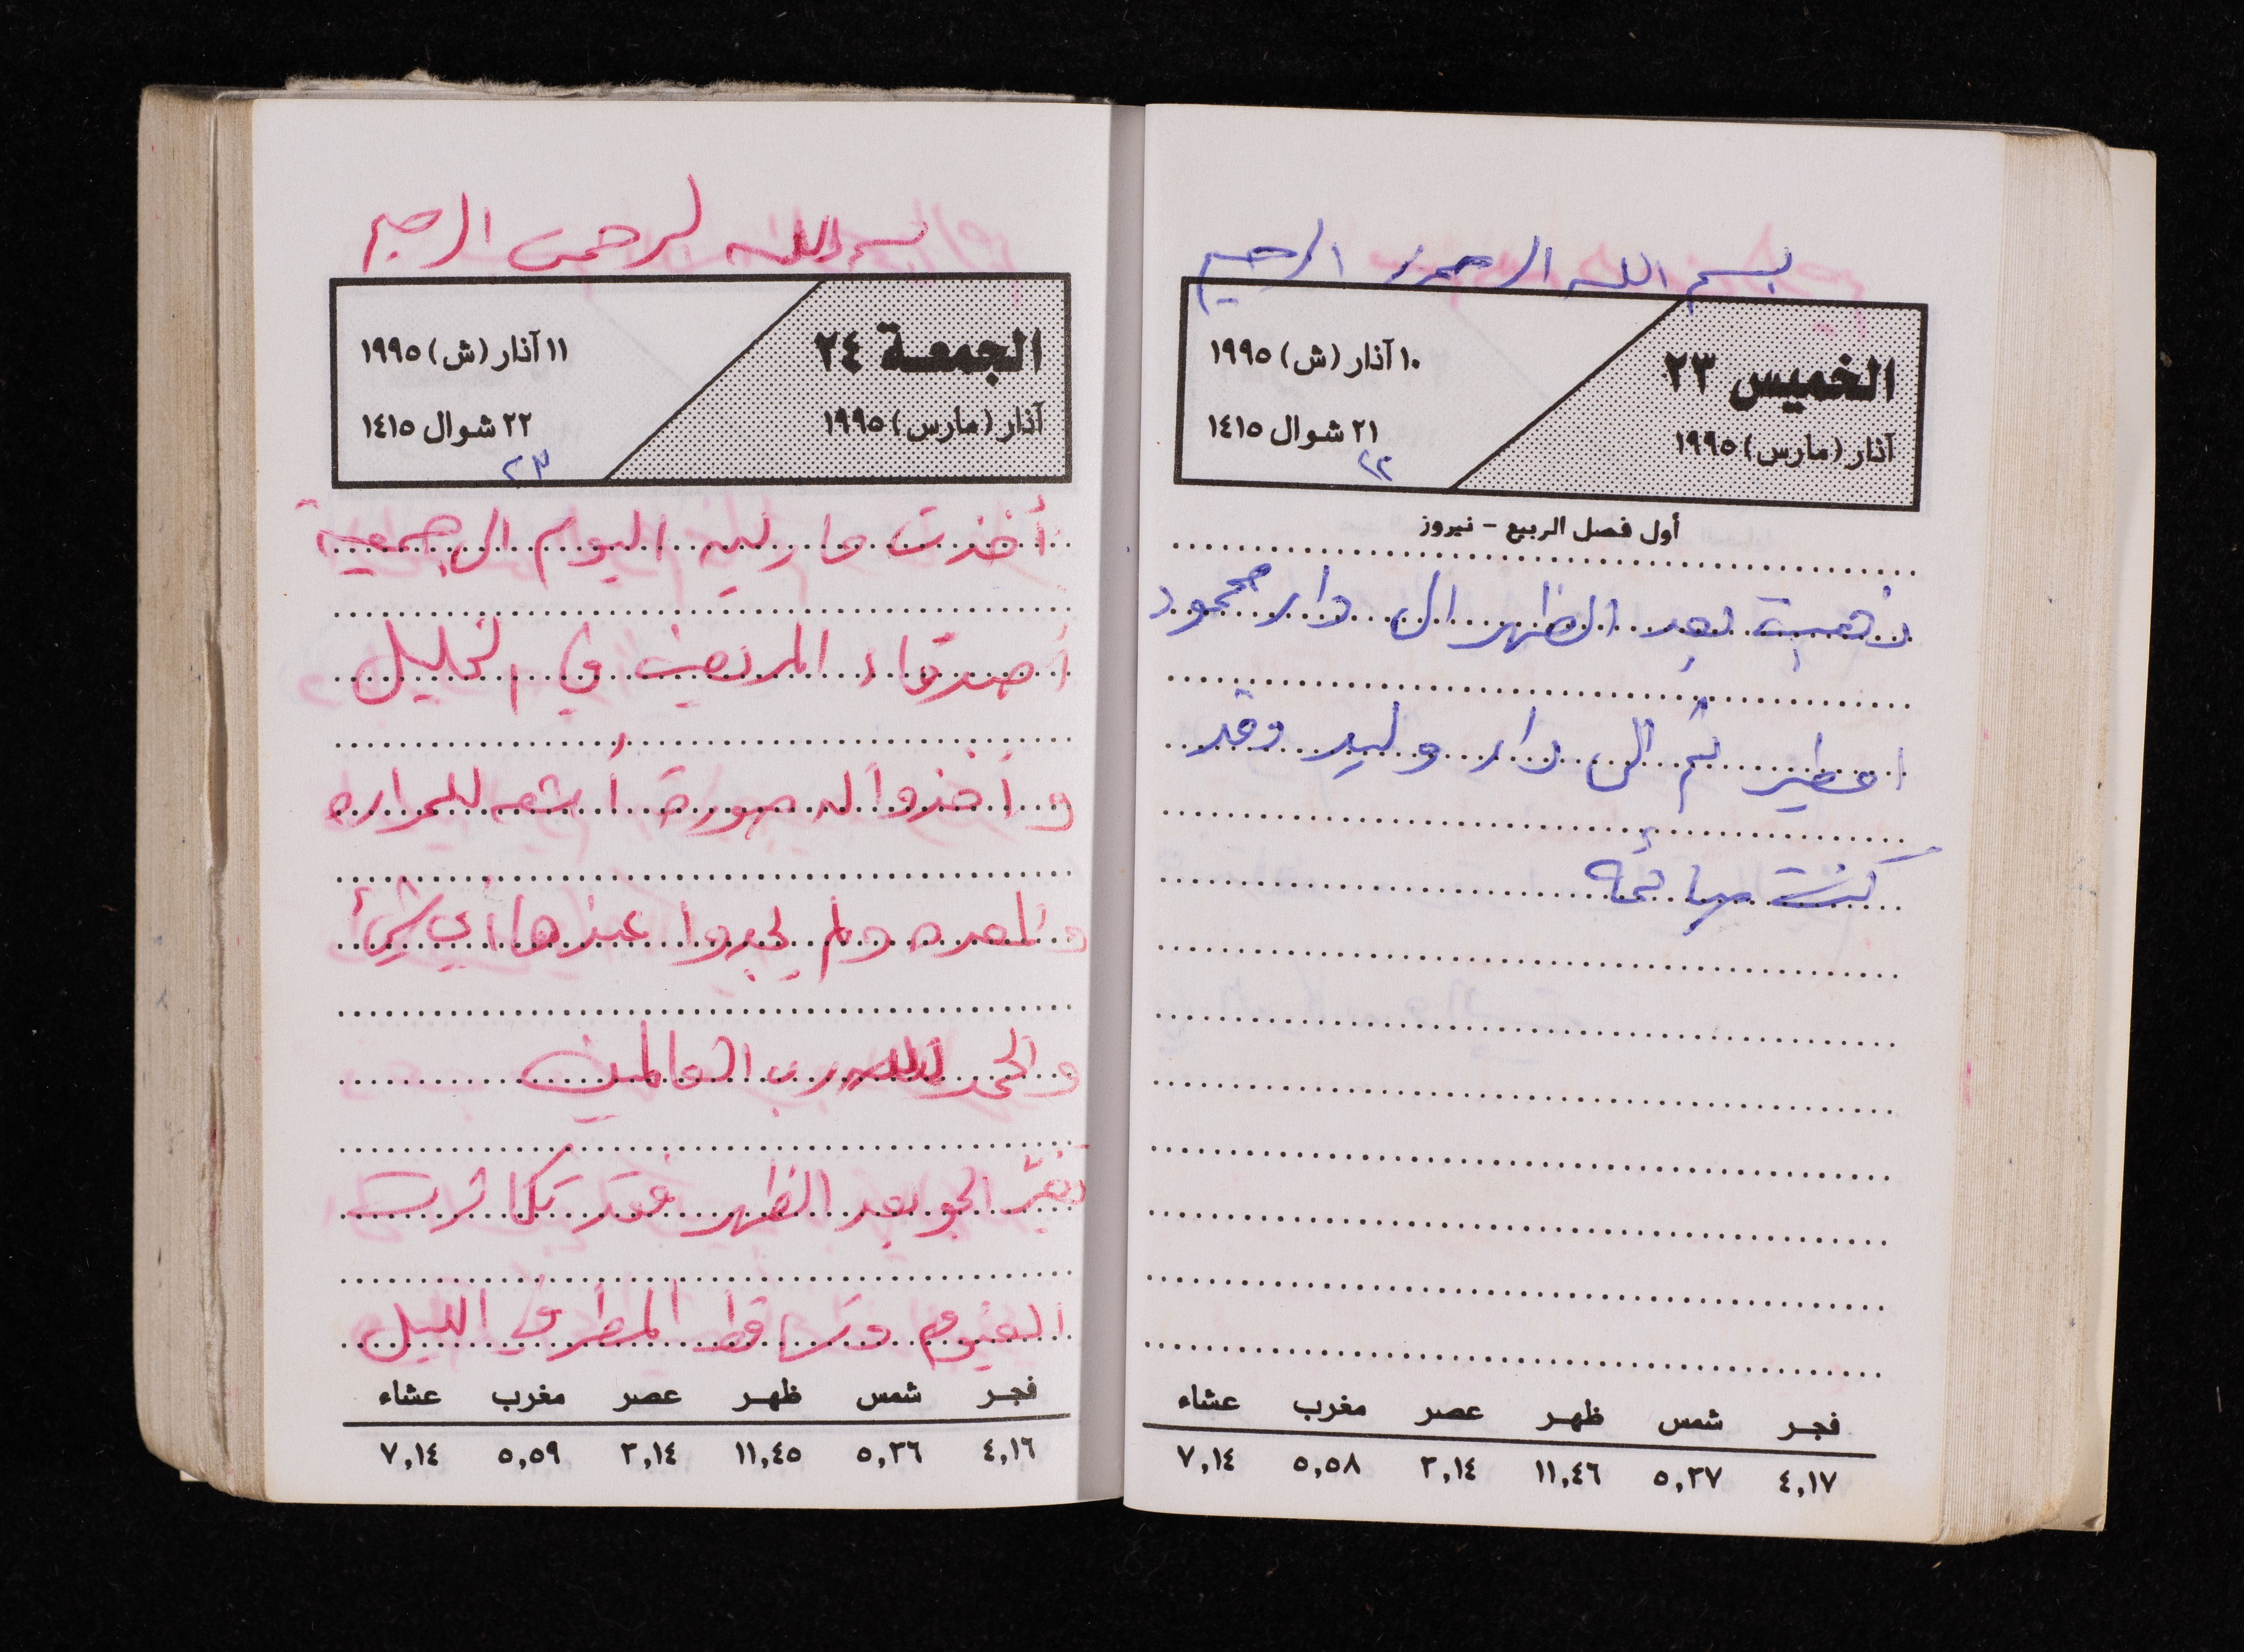 بسم الله الرحمن الرحيم
الخميس ٢٣
آذار (مارس) ١٩٩٥
١٠ آذار (ش) ١٩٩٥
٢١ شوال ١٤١٥
٢٢
أول فصل الربيع - نيروز
ذهبت بعد الظهر الى دار محمود
اعطير ثم الى دار وليد وقد
كنت صائمه
فجر شمس ظهر عصر مغرب عشاء
٤,١٧ ٥,٣٧ ١١,٤٦ ٣,١٤ ٥,٥٨ ٧,١٤
بسم الله الرحمن الرحيم
الجمعة ٢٤
آذار (مارس) ١٩٩٥
١١ آذار (ش) ١٩٩٥
٢٢ شوال ١٤١٥
٢٣
أخذت مارلين اليوم الى جمعية
أصدقاء المريض في الخليل
و أخذوا له صورة أشعه للمراره
والمعده ولم يجدوا عندها أي شيئ
والحمد لله رب العالمين
تغيّر الجو بعد الظهر فقد تكاثرت
الغيوم وتساقط المطر في الليل
فجر شمس ظهر عصر مغرب عشاء
٤,١٦ ٥,٣٦ ١١,٤٥ ٣,١٤ ٥,٥٩ ٧,١٤